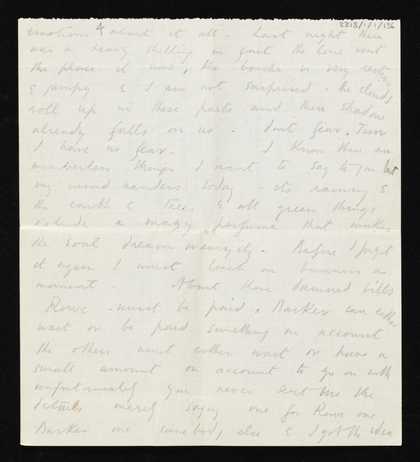 8818/1/1/136
emotions & about it all. Last night there
was a heavy shelling in front the line went
the phone it was, the bosche is very restive
& jumpy & I am not surprised. The clouds
roll up in these parts and their shadow
already falls on us - dont fear,
I have no fear. I know there are
numberless things I want to say to you but
my mind wanders today - its raining &
the earth & trees & all green things
exhale a magic perfume that makes
the soul dream wearily. Before I forget
it again I must touch on business a
moment. About those damned bills
Rowe must be paid, Barker can either
wait or be paid something on account
the others must either wait or have a
small amount on account to go on with
unfortunately you never sent me the
details merely saying one for Rowe one
Barker one somebody else & I got the idea